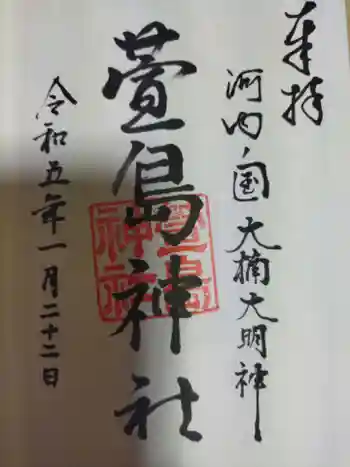 奉拝
河内ノ国大楠大明神
萱島神社
萱島神社
令和五年一月二十二日